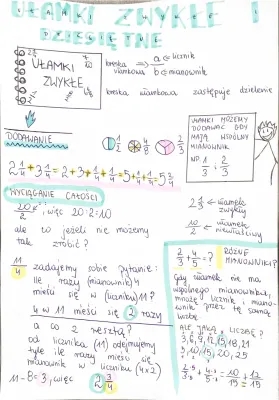 UŁAMKI ZWYKŁE I
DZIESIĘTNE
UŁAMKI
ZWYKŁE
kreska ułamkowa → a ← licznik
b ← mianownik
kreska ułamkowa zastępuje dzielenie
DODAWANIE
1/2 4/8 2/3
UŁAMKI MOŻEMY
DODAWAĆ GDY
MAJĄ WSPÓLNY
MIANOWNIK
NP. 1/3 i 2/3
2 1/4 + 3 1/4 = 2 + 3 + 1/4 + 1/4 =
WYCIĄGANIE CAŁOŚCI
20/2, więc 20:2=10
ale co jeżeli nie możemy
tak zrobić?
2 3/4 ← ułamek
zwykły
10/2 ← ułamek
niewłaściwy
11/4 zadajemy sobie pytanie:
ile razy (mianownik) 4
mieści się w (liczniku) 11?
4 w 11 mieści się 2 razy
a co z resztą?
od licznika (11) odejmujemy
tyle ile razy mieści się
mianownik w liczniku (4x2)
11-8=3, więc 2 3/4
2/3 + 4/5 = ?
RÓŻNE
MIANOWNIKI?
Gdy ułamek nie ma
wspólnego mianownika,
mnożę licznik i miano-
wnik przez tę samą
liczbę
ALE JAKĄ LICZBĘ?
3,6,9,12,15,18,21
5,10,15,20,25
2·5/3·5 + 4·3/5·3 = 10/15 + 12/15